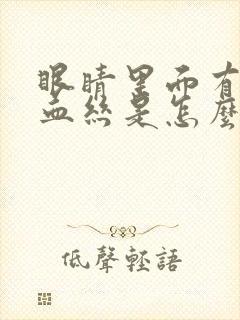 眼睛里面有
血丝是怎麼
低聲輕語